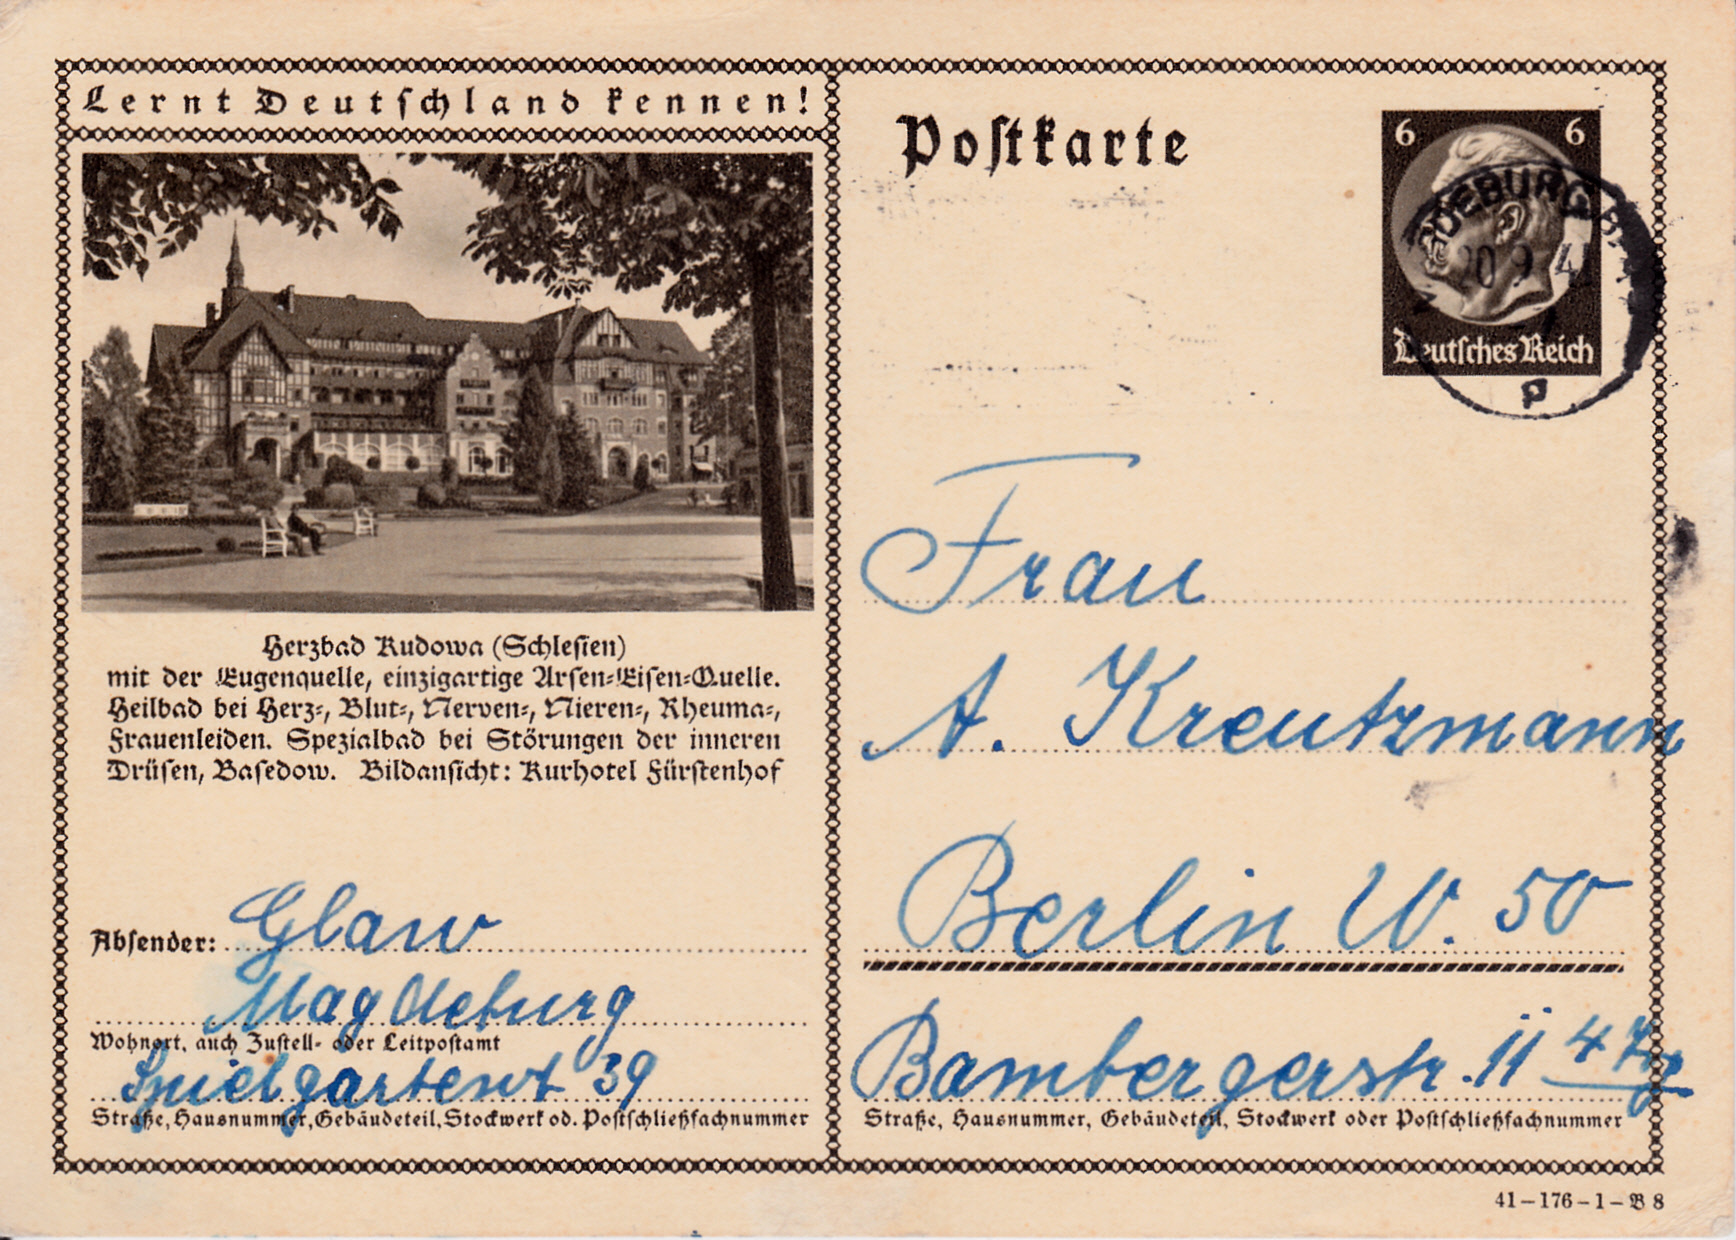 Lernt Deutschland kennen!
Herzbad Kudowa (Schlesien)
mit der Eugenquelle, einzigartige Arsen-Eisen-Quelle.
Heilbad bei Herz-, Blut-, Nerven-, Nieren-, Rheuma-,
Frauenleiden. Spezialbad bei Störungen der inneren
Drüsen, Basedow. Bildansicht: Kurhotel Fürstenhof
Absender: Glaw
Magdeburg
Wohnort, auch Zustell- oder Leitpostamt
39
Straße, Hausnummer, Gebäudeteil, Stockwerk od. Postschließfachnummer
Postkarte
6 6
Deutsches Reich
20.9.41
p
Frau
A. Kreutzmann
Berlin W. 50
Bambergerstr. 11
Straße, Hausnummer, Gebäudeteil, Stockwerk oder Postschließfachnummer
41-176-1-B 8